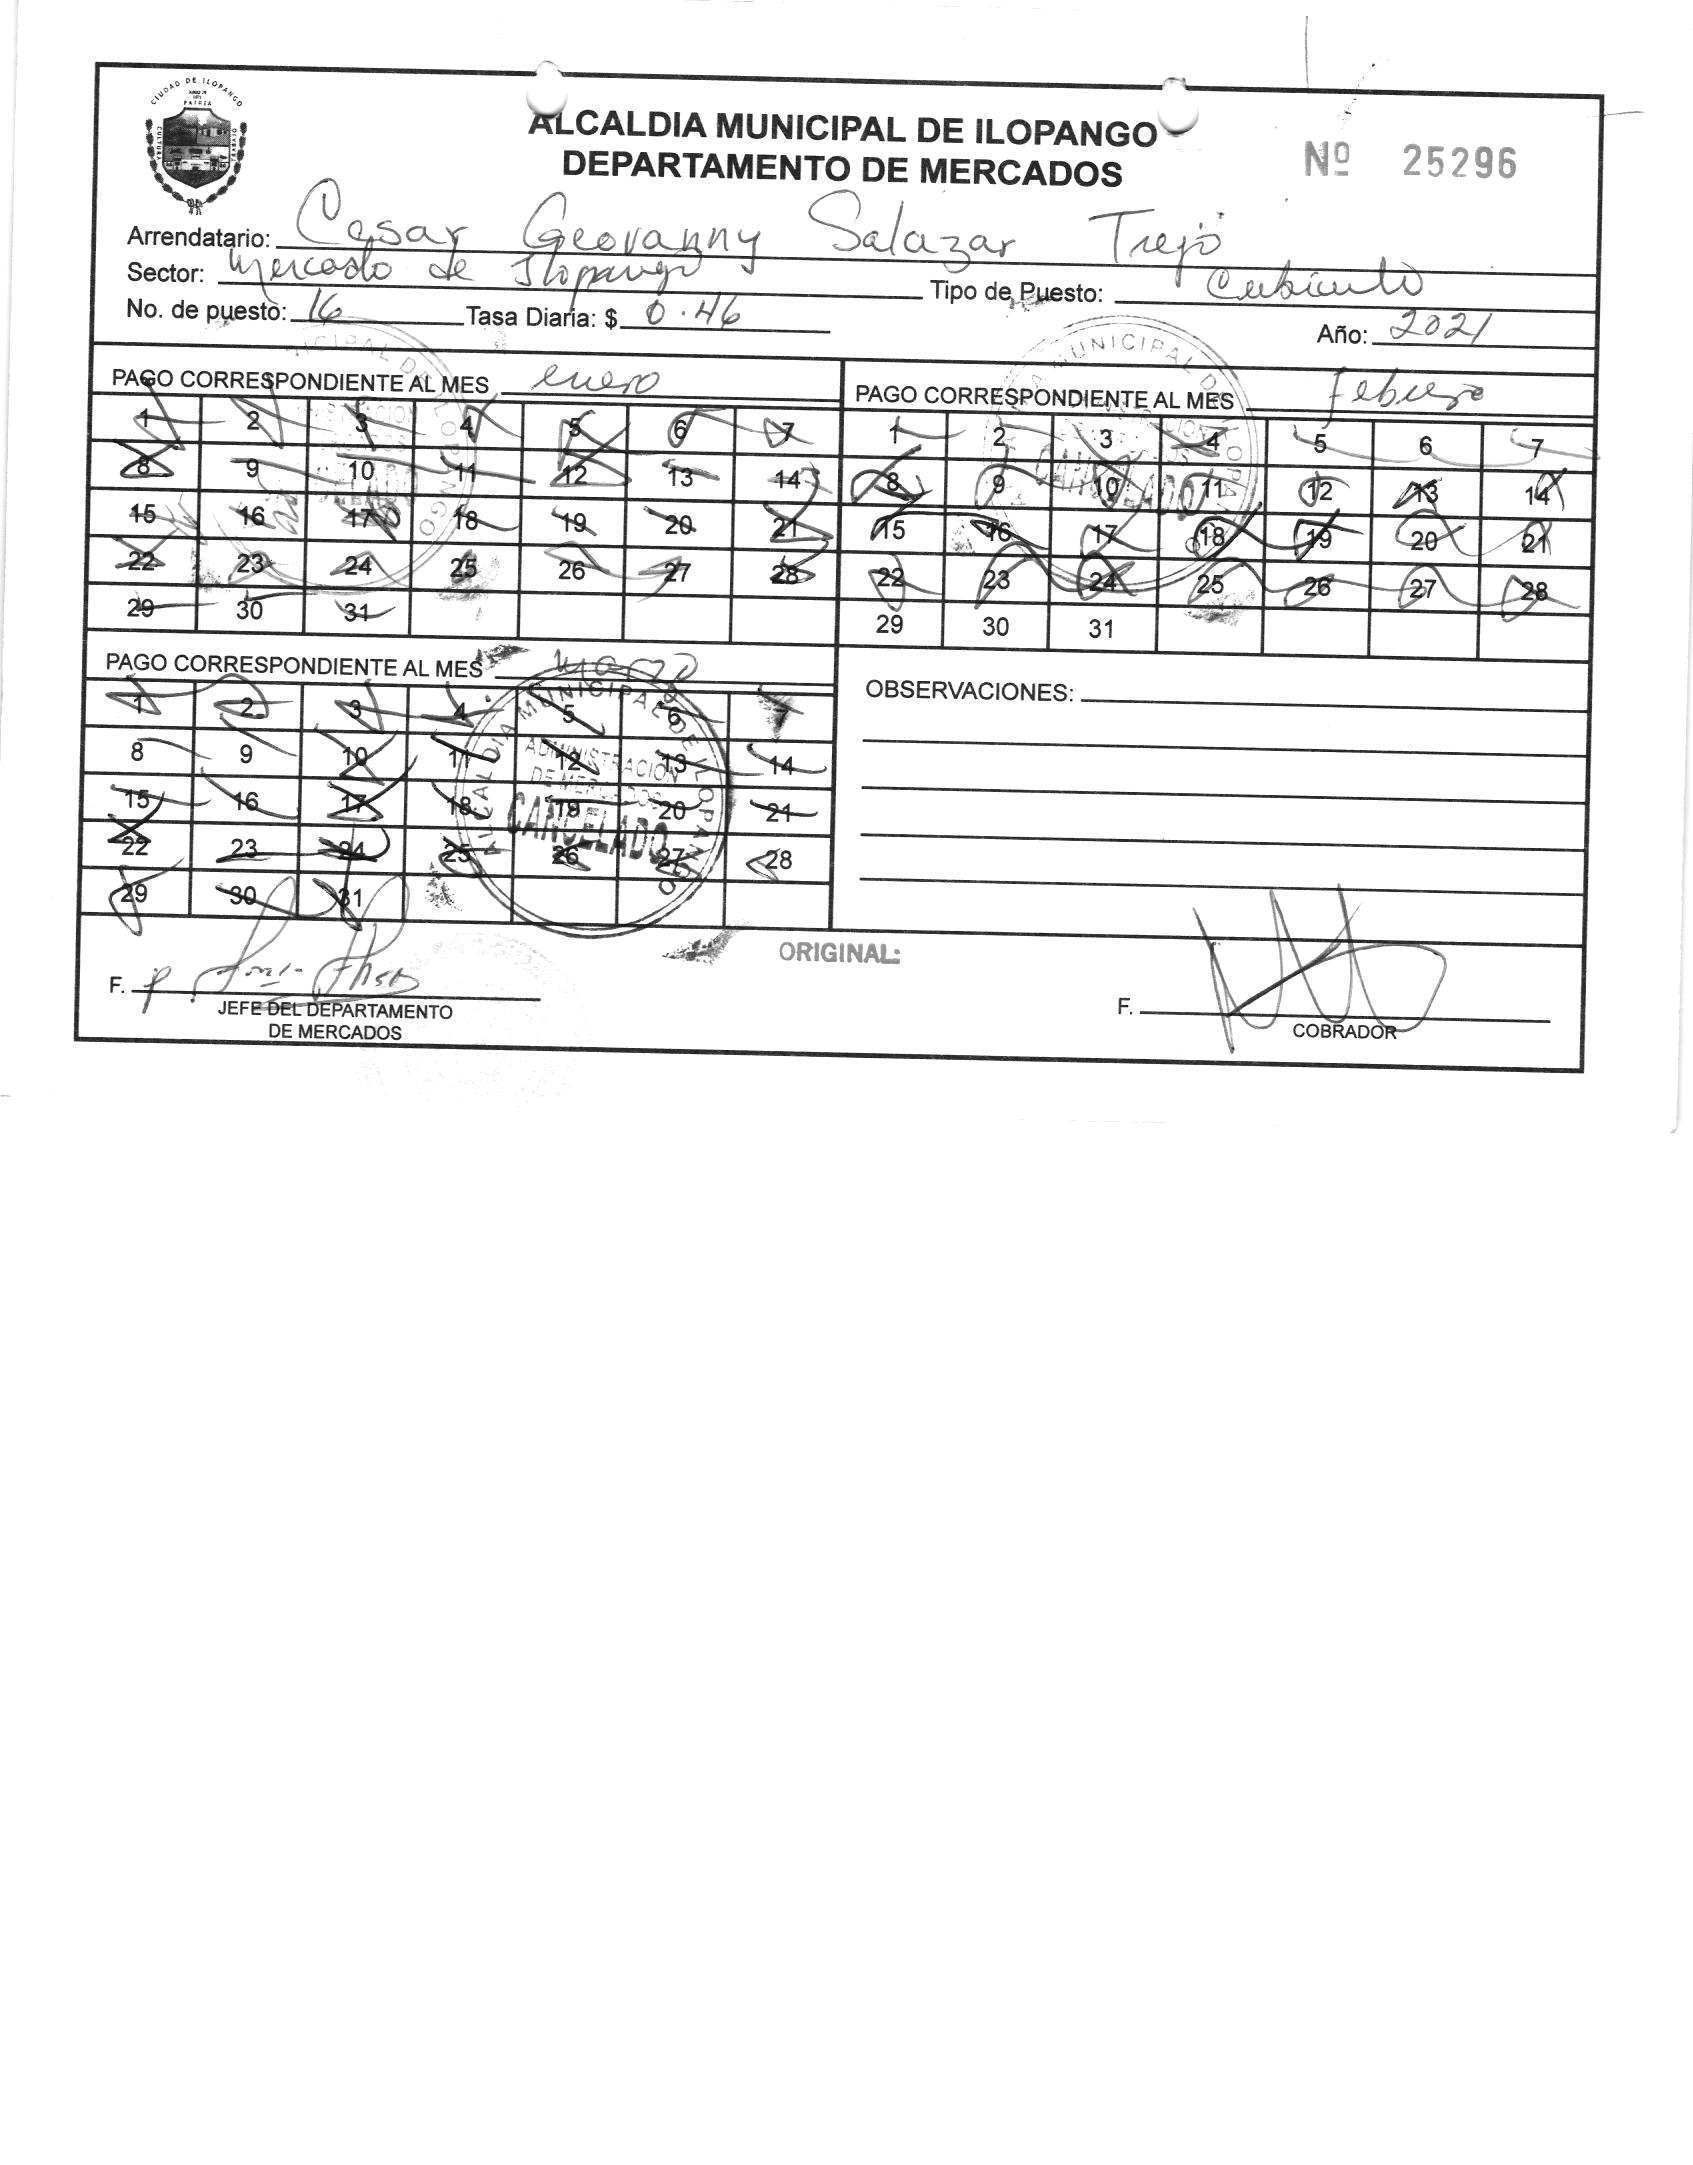 CIUDAD DE ILOPANGO
PATRIA
CULTURA
ALCALDIA MUNICIPAL DE ILOPANGO
DEPARTAMENTO DE MERCADOS
Nº 25296
Arrendatario: Cesar Geovanny Salazar Trejo
Sector: Mercado de Ilopango Tipo de Puesto: Cubiculo
No. de puesto: 16 Tasa Diaria: $ 0.46 Año: 2021
PAGO CORRESPONDIENTE AL MES enero
1 2 3 4 5 6 7
8 9 10 11 12 13 14
15 16 17 18 19 20 21
22 23 24 25 26 27 28
29 30 31
PAGO CORRESPONDIENTE AL MES Febrero
1 2 3 4 5 6 7
8 9 10 11 12 13 14
15 16 17 18 19 20 21
22 23 24 25 26 27 28
29 30 31
CANCELADO
PAGO CORRESPONDIENTE AL MES marzo
1 2 3 4 5 6 7
8 9 10 11 12 13 14
15 16 17 18 19 20 21
22 23 24 25 26 27 28
29 30 31
ALCALDIA MUNICIPAL DE ILOPANGO
ADMINISTRACION
DE MERCADOS
CANCELADO
OBSERVACIONES:
ORIGINAL:
F.
JEFE DEL DEPARTAMENTO
DE MERCADOS
F.
COBRADOR